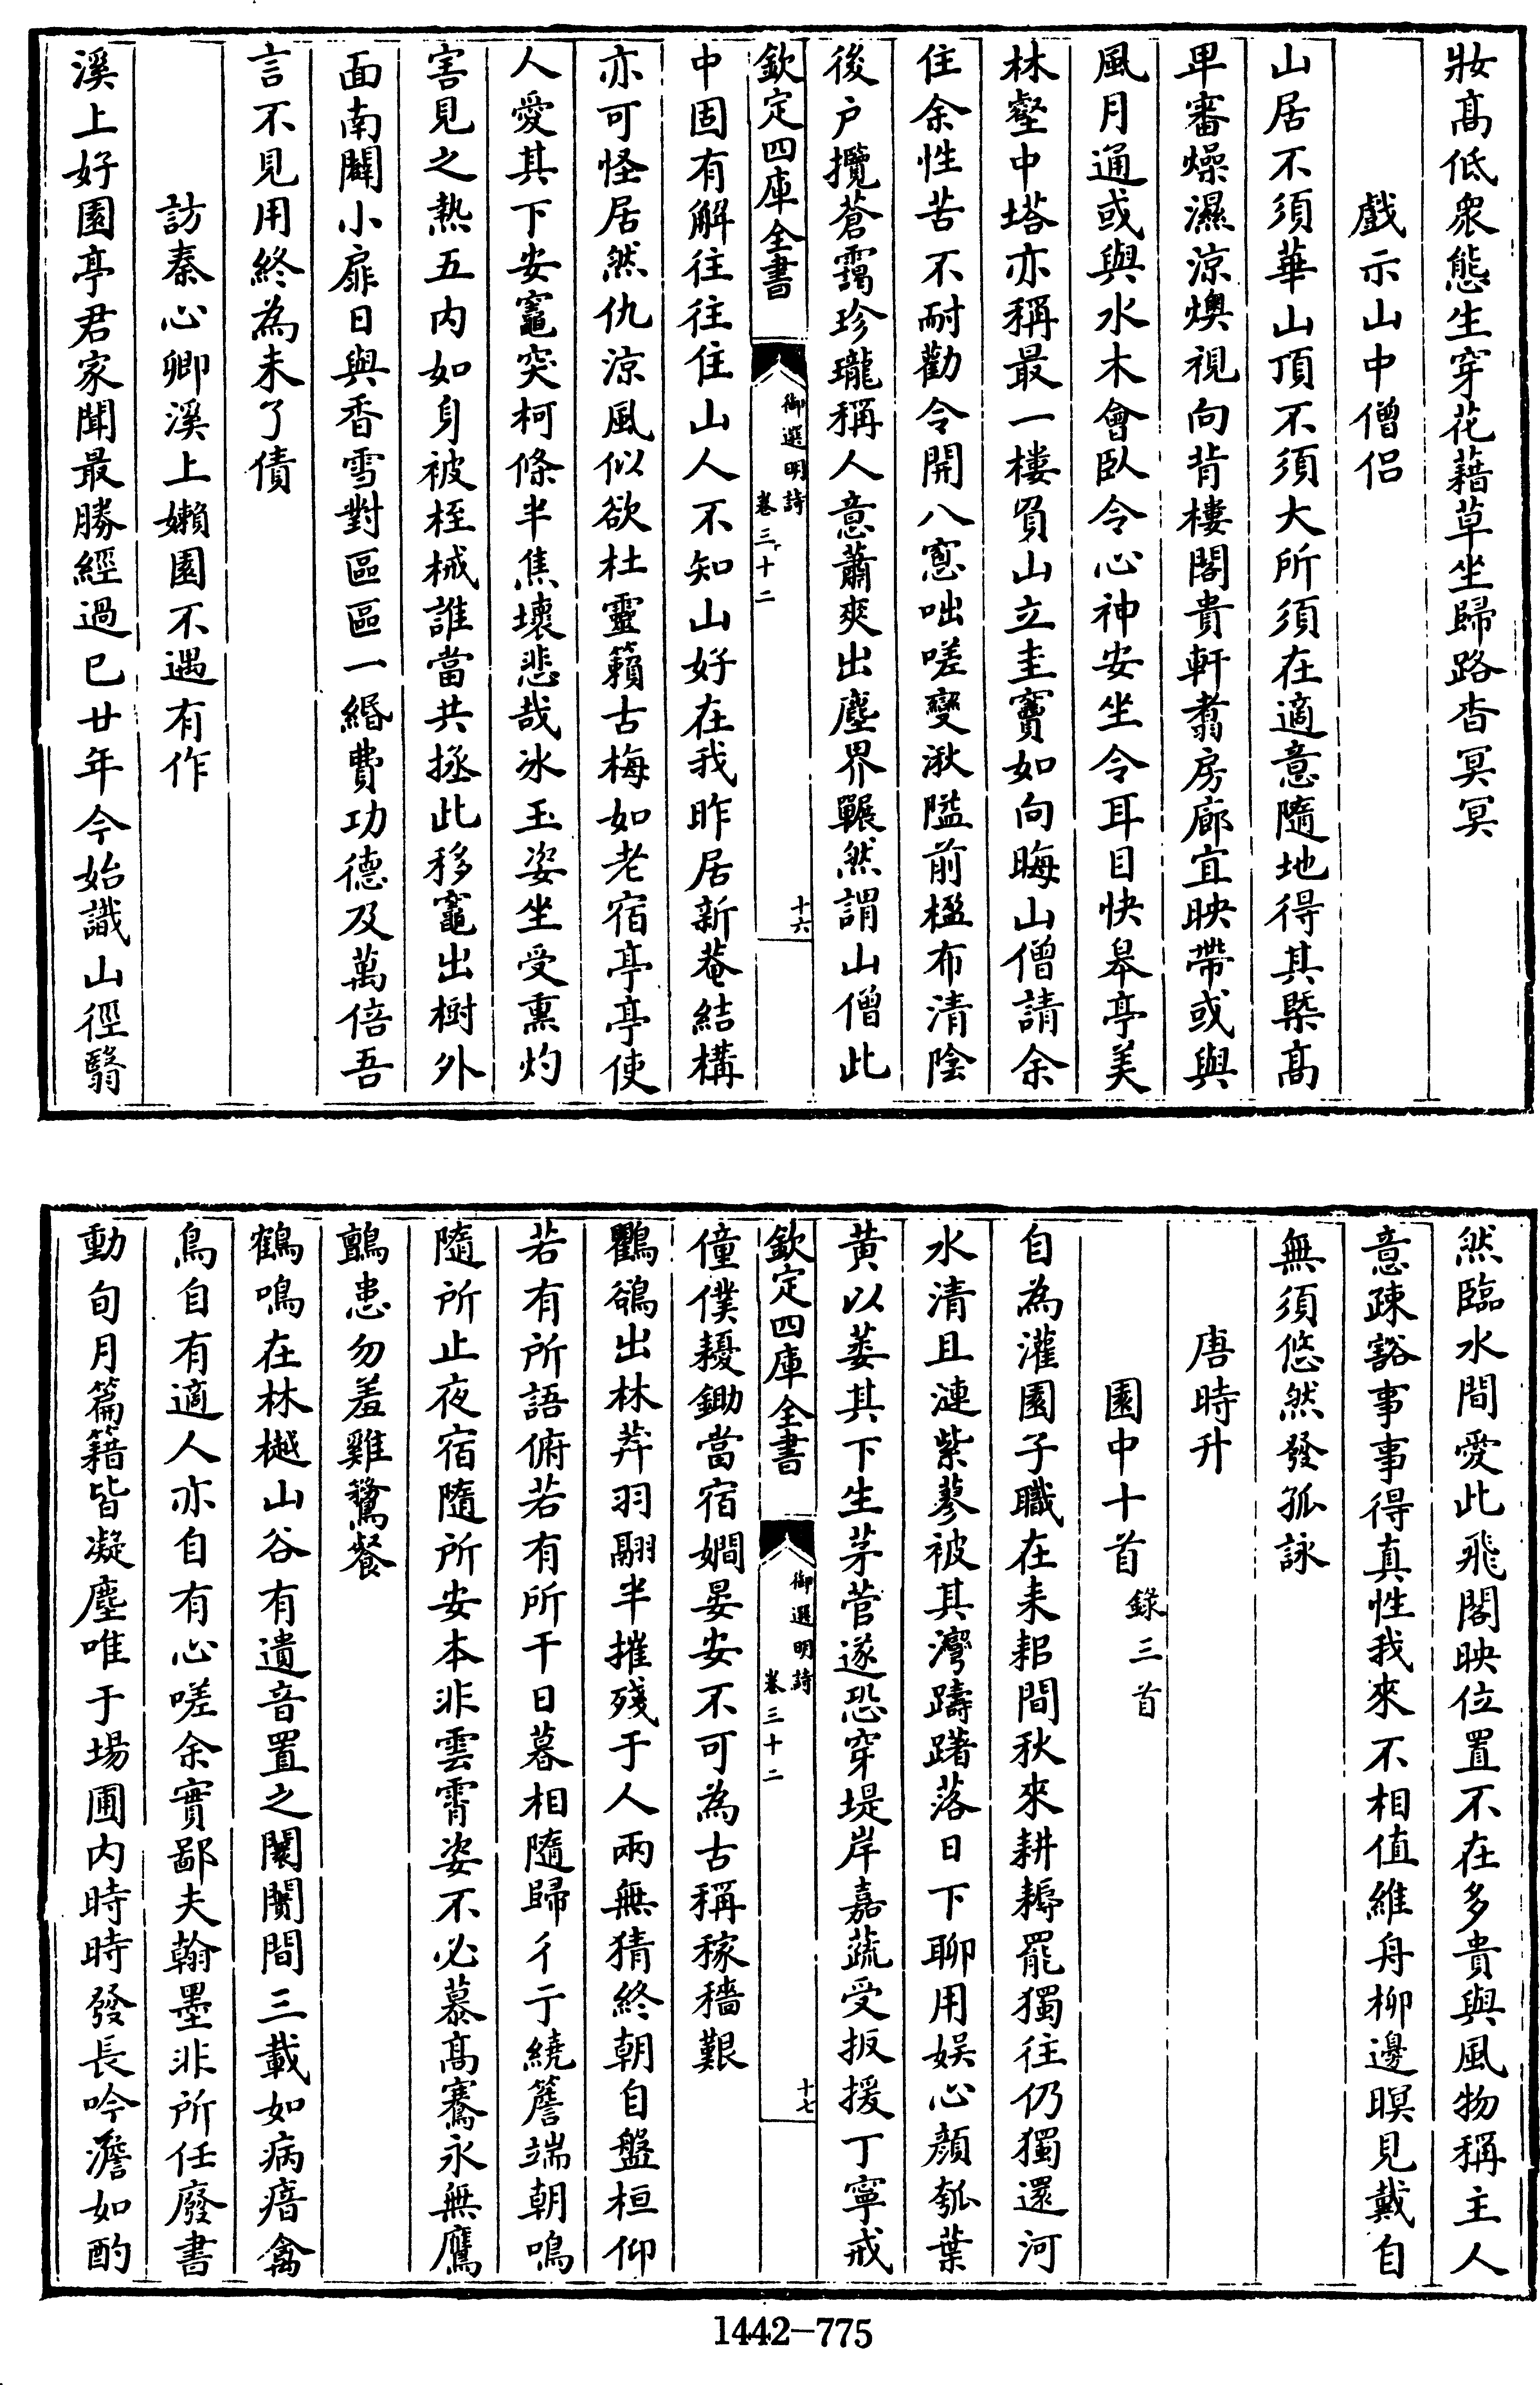 妝髙低衆態生穿花藉草坐歸路杳冥冥
戲示山中僧侣
山居不須華山頂不須大所須在適意隨地得其槩髙
卑審燥濕涼燠視向背樓閣貴軒翥房廊宜映帶或與
風月通或與水木會臥令心神安坐令耳目快皋亭美
林壑中塔亦稱最一樓負山立圭竇如向晦山僧請余
住余性苦不耐勸令開八窓咄嗟變湫隘前楹布清陰
後户攬蒼靄珍瓏稱人意蕭爽出塵界囅然謂山僧此
欽定四庫全書
御選明詩
卷三十二
十六
中固有解往往住山人不知山好在我昨居新菴結構
亦可怪居然仇涼風似欲杜靈籟古梅如老宿亭亭使
人愛其下安竈突柯條半焦壞悲哉冰玉姿坐受熏灼
害見之熱五内如身被桎械誰當共拯此移竈出樹外
面南闢小扉日與香雪對區區一緡費功德及萬倍吾
言不見用終為未了債
訪秦心卿溪上嬾園不遇有作
溪上好園亭君家聞最勝經過已廿年今始識山徑翳
然臨水間愛此飛閣映位置不在多貴與風物稱主人
意疎豁事事得真性我來不相值維舟柳邊暝見戴自
無須悠然發孤詠
唐時升
園中十首錄三首
自為灌園子職在耒耜間秋來耕耨罷獨往仍獨還河
水清且漣紫蓼被其灣躊躇落日下聊用娱心顔瓠葉
黄以萎其下生茅菅遂恐穿堤岸嘉蔬受扳援丁寧戒
欽定四庫全書
御選明詩
卷三十二
十七
僮僕耰鋤當宿嫺晏安不可為古稱稼穡艱
鸜鵒出林莽羽翮半摧殘于人兩無猜終朝自盤桓仰
若有所語俯若有所干日暮相隨歸彳亍繞簷端朝鳴
隨所止夜宿隨所安本非雲霄姿不必慕髙騫永無鷹
鸇患勿羞雞鶩餐
鶴鳴在林樾山谷有遺音置之闤闠間三載如病瘖禽
鳥自有適人亦自有心嗟余實鄙夫翰墨非所任廢書
動旬月篇籍皆凝塵唯于場圃内時時發長吟澹如酌
1442-775